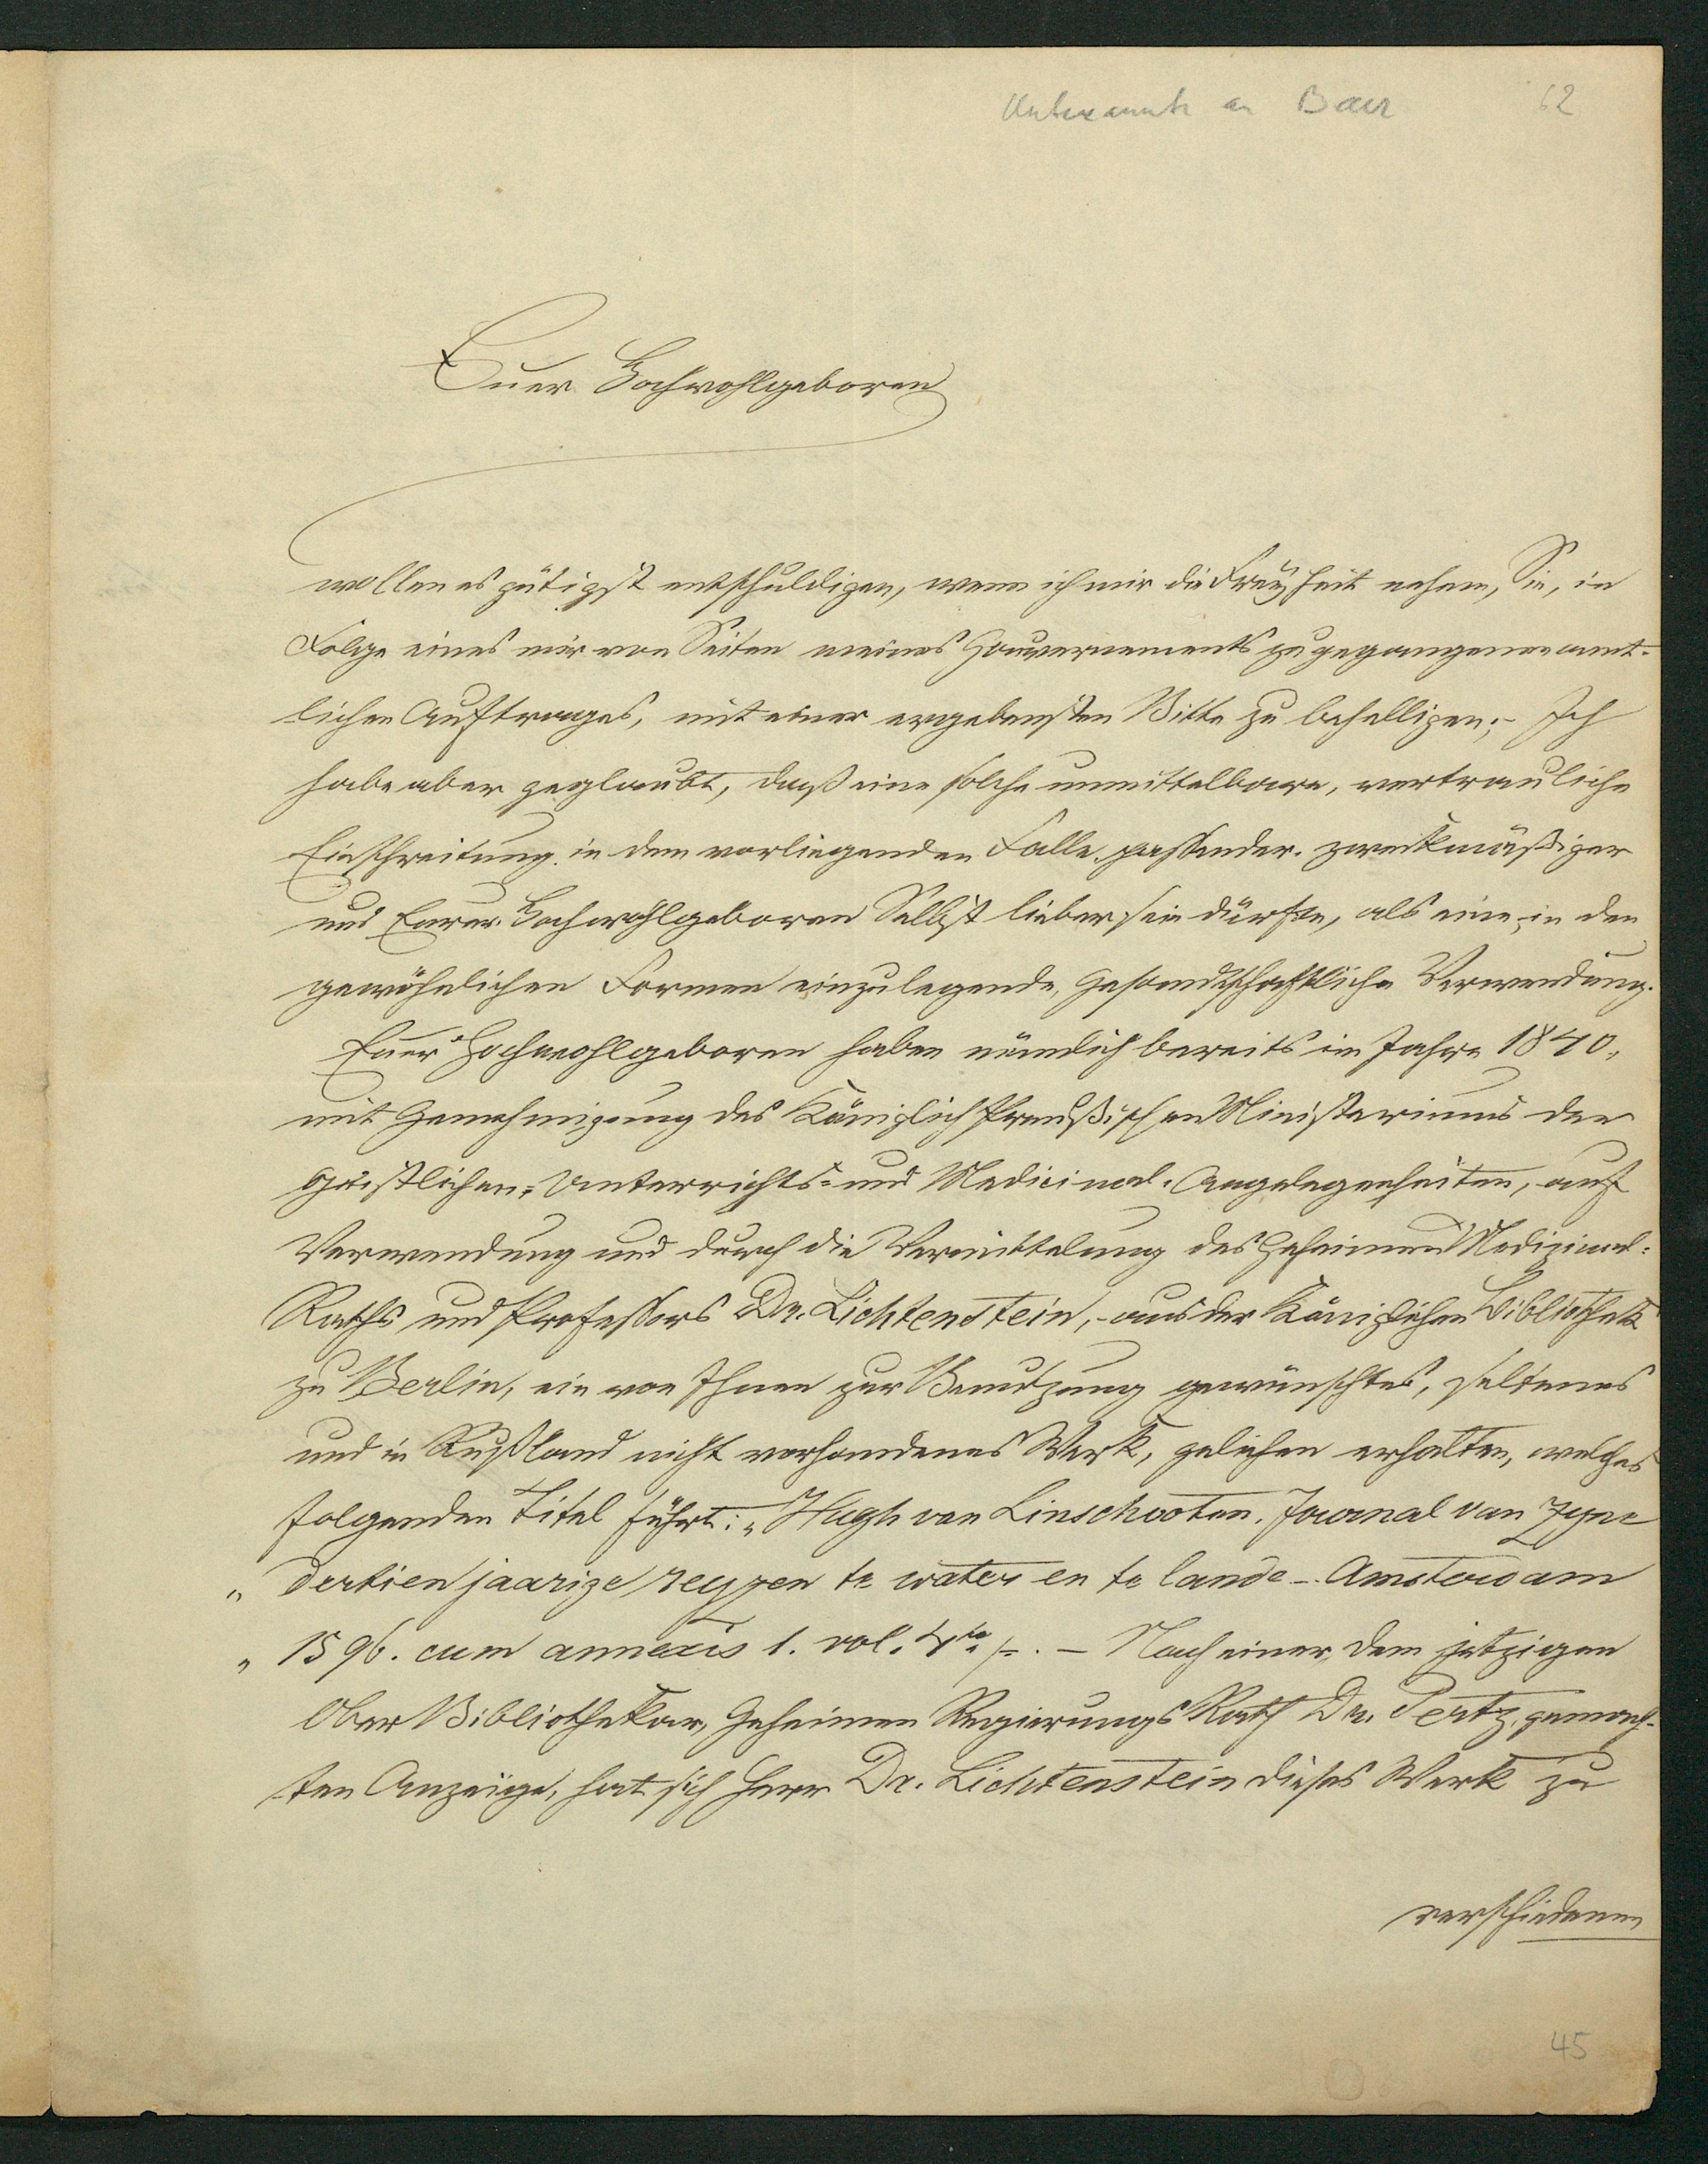 Unbekannte an Baer 62
Euer Hochwohlgeboren
wollen es gütigst entschuldigen, wenn ich mir die Freyheit nehme, Sie, in
Folge eines mir von Seiten meines Gouvernements zugegangenen amt-
lichen Auftrages, mit einer ergebensten Bitte zu behelligen; – Ich
habe aber geglaubt, daß eine solche unmittelbare, vertrauliche
Einschreitung in dem vorliegenden Falle passender, zweckmäßiger
und Eurer Hochwohlgeboren Selbst lieber sein dürfte, als eine, in den
gewöhnlichen Formen einzulegende, gesandtschaftliche Verwendung.
Euer Hochwohlgeboren haben nämlich bereits im Jahre 1840,
mit Genehmigung des Königlich Preußischen Ministeriums der
geistlichen-, Unterrichts- und Medicinal-Angelegenheiten, auf
Verwendung und durch die Vermittelung des Geheimen Medizinal-
Raths und Professors Dr. Lichtenstein, – aus der Königlichen Bibliothek
zu Berlin, ein von Ihnen zur Benutzung gewünschtes, seltenes
und in Rußland nicht vorhandenes Werk, geliehen erhalten, welches
folgenden Titel führt: „Hugh van Linschooten. Journal van zyne
„ dertien jaarige reyzen te water en te lande – Amsterdam
„ 1596. cum annexis 1. vol. 4to – Nach einer, dem jetzigen
Ober Bibliothekar, Geheimen Regierungs Rath Dr. Pertz, gemach-
ten Anzeige, hat sich Herr Dr. Lichtenstein dieses Werk zu
verschiedenen
45